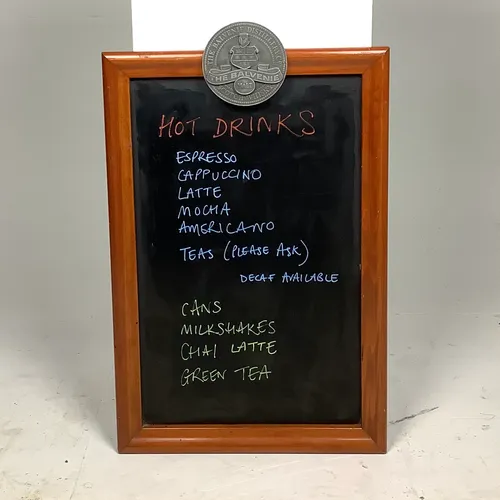 THE BALVENIE DISTILLERY
THE BALVENIE
HOT DRINKS
ESPRESSO
CAPPUCCINO
LATTE
MOCHA
AMERICANO
TEAS (PLEASE ASK)
DECAF AVAILABLE
CANS
MILKSHAKES
CHAI LATTE
GREEN TEA